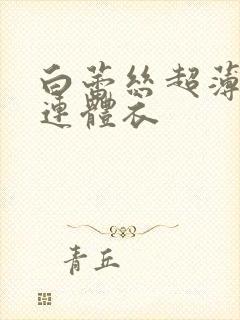 白蕾絲超薄
連體衣
青丘